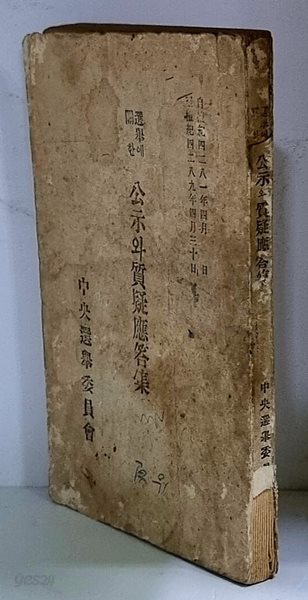 自檀紀四二八一年四月 日
至檀紀四二八九年四月三十日
選擧에
關한
公示와質疑應答集
中央選擧委員會
公示와質疑應答集
中央選擧委員
yes24